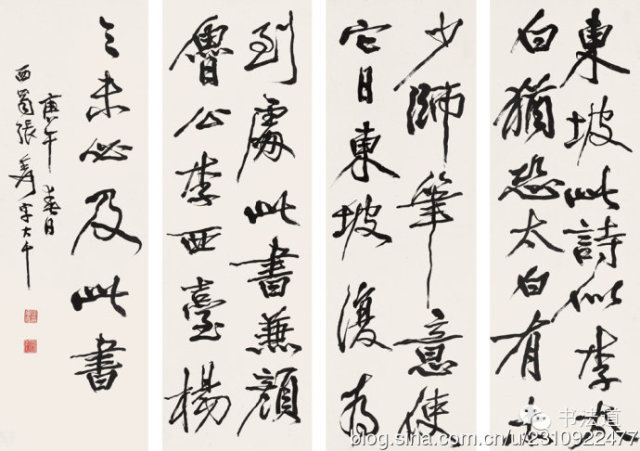 東坡此詩似李太
白猶恐太白有未
少師筆意使
它日東坡復為
到處此書兼顏
魯公李西臺楊
之未必及此書
庚午春日
西蜀張爰字大千
书法道
blog.sina.com.cn/u/2310922477